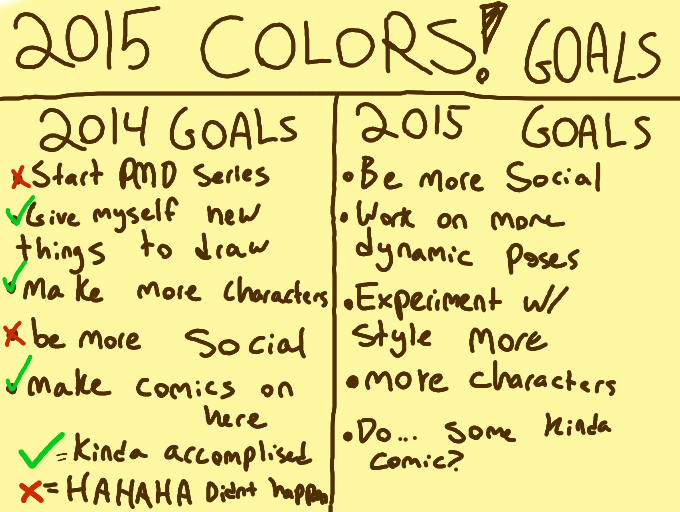 2015 COLORS! GOALS
2014 GOALS
Start PMD Series
Give myself new
things to draw
Make more characters
be more Social
make comics on
here
= Kinda accomplised
= HAHAHA Didnt happen
2015 GOALS
• Be more Social
• Work on more
dynamic poses
• Experiment w/
Style More
• more characters
• Do... some kinda
comic?